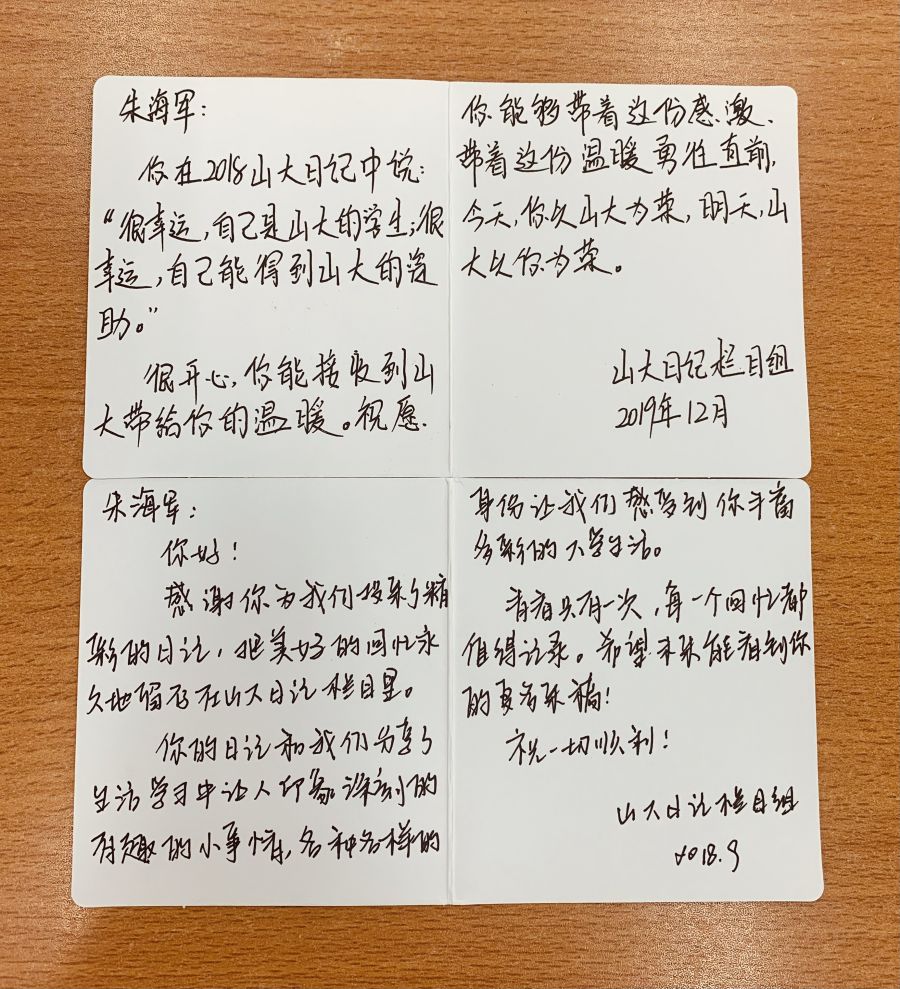 朱海军：
你在2018山大日记中说：
“很幸运，自己是山大的学生；很
幸运，自己能得到山大的资
助。”
很开心，你能接收到山
大带给你的温暖。祝愿
你能够带着这份感激、
带着这份温暖勇往直前，
今天，你以山大为荣，明天，山
大以你为荣。
山大日记栏目组
2019年12月
朱海军：
你好！
感谢你为我们投来了精
彩的日记，把美好的回忆永
久地留存在山大日记栏目里。
你的日记和我们分享了
生活学习中让人印象深刻的
有趣的小事情，各种各样的
身份让我们感受到你丰富
多彩的大学生活。
青春只有一次，每一个回忆都
值得记录。希望未来能看到你
的更多来稿！
祝一切顺利！
山大日记栏目组
2018.9